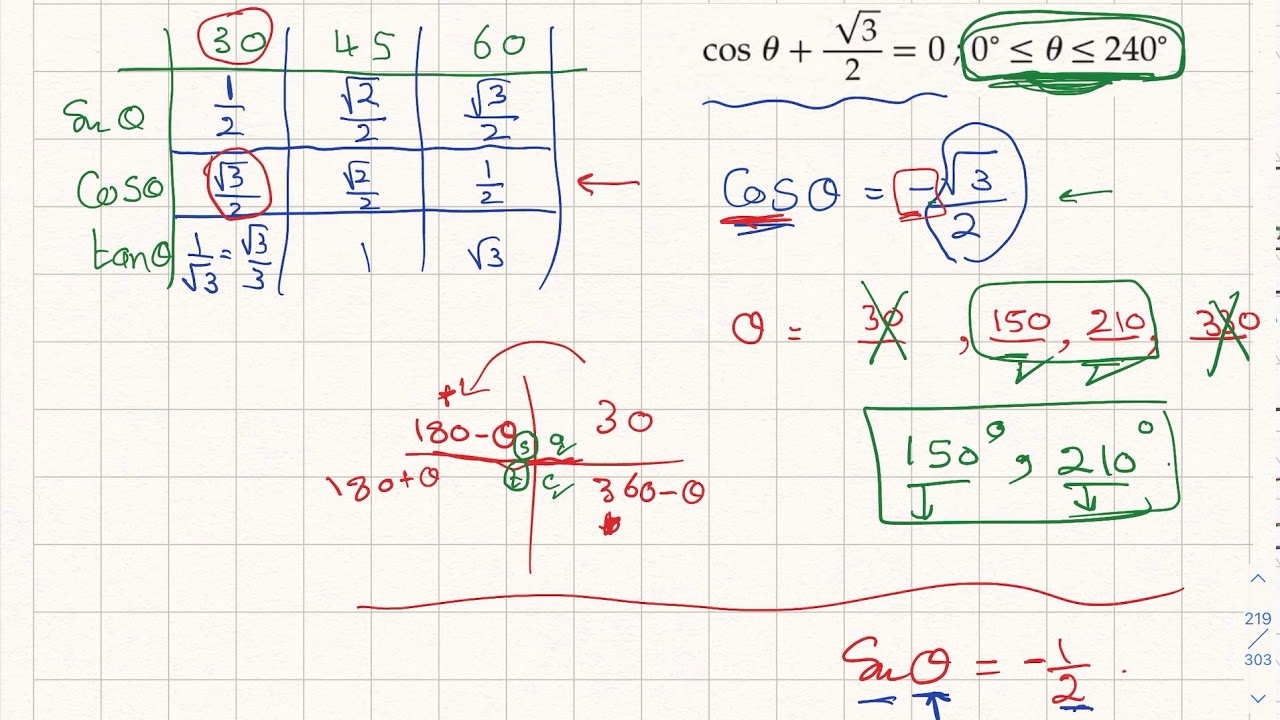 30 45 60
Sin θ 1/2 √2/2 √3/2
Cosθ √3/2 √2/2 1/2
tanθ 1/√3 = √3/3 1 √3
cos θ + √3/2 = 0 ; 0° ≤ θ ≤ 240°
Cosθ = -√3/2
θ = 30 , 150 , 210 , 330
180-θ S a 30
180+θ t c 360-θ
150° , 210°
Sin θ = -1/2
219
303